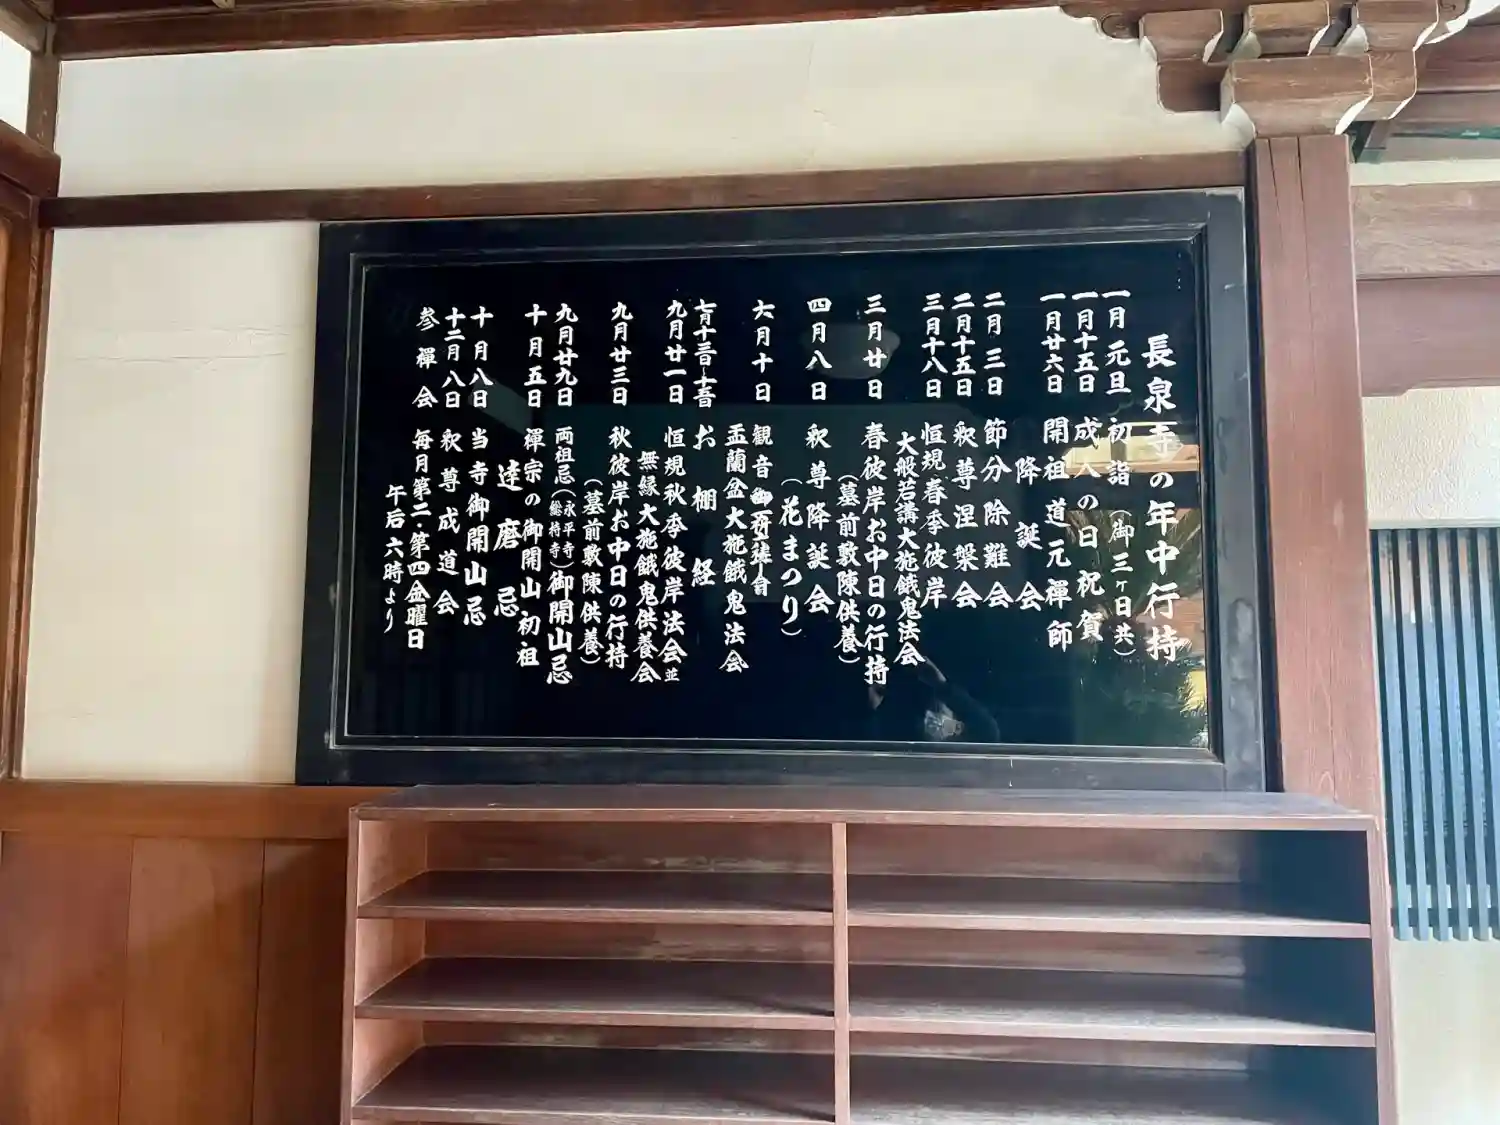 長泉寺の年中行持
一月元旦 初詣(御三ヶ日共)
一月十五日 成人の日祝賀
一月廿六日 開祖道元禅師
降誕会
二月三日 節分除難会
二月十五日 釈尊涅槃会
三月十八日 恒規春季彼岸
大般若講大施餓鬼法会
三月廿日 春彼岸お中日の行持
(墓前敷陳供養)
四月八日 釈尊降誕会
(花まつり)
六月十日 観音
盂蘭盆大施餓鬼法会
お棚経
九月廿一日 恒規秋季彼岸法会並
無縁大施餓鬼供養会
九月廿三日 秋彼岸お中日の行持
(墓前敷陳供養)
九月廿九日 両祖忌(永平寺 総持寺)御開山忌
十月五日 禅宗の御開山初祖
達磨忌
十月八日 当寺御開山忌
十二月八日 釈尊成道会
参禅会 毎月第二・第四金曜日
午后六時より